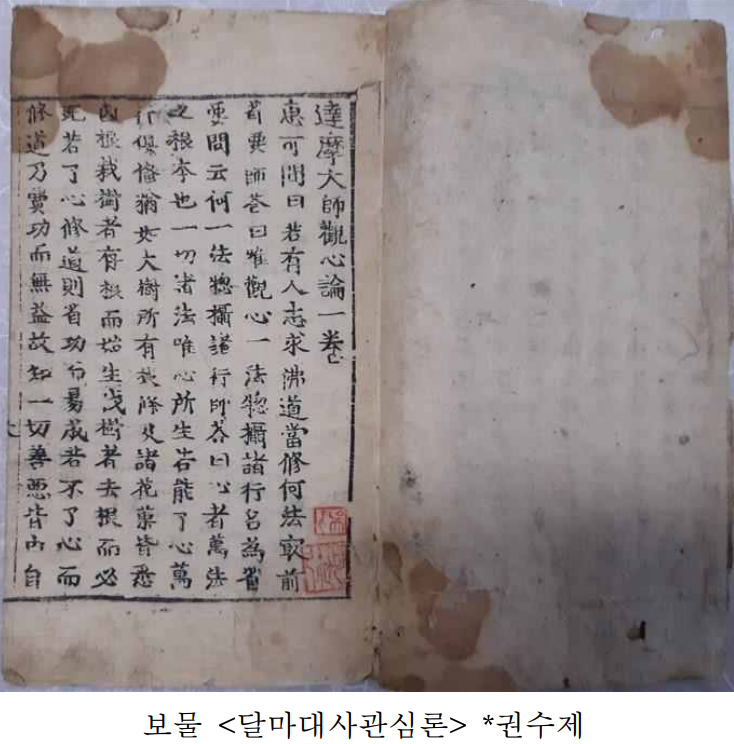 達摩大師觀心論一卷
惠可問曰若有人志求佛道當修何法㝡前
省要師荅曰唯觀心一法惣攝諸行名爲省
要問云何一法惣攝諸行師荅曰心者萬法
之根本也一切諸法唯心所生若能了心萬
行俱俻猶如大樹所有枝條及諸花菓皆悉
因根栽樹者有根而始生伐樹者去根而必
死若了心修道則省功而易成若不了心而
修道乃費功而無益故知一切善惡皆由自
보물 <달마대사관심론> *권수제